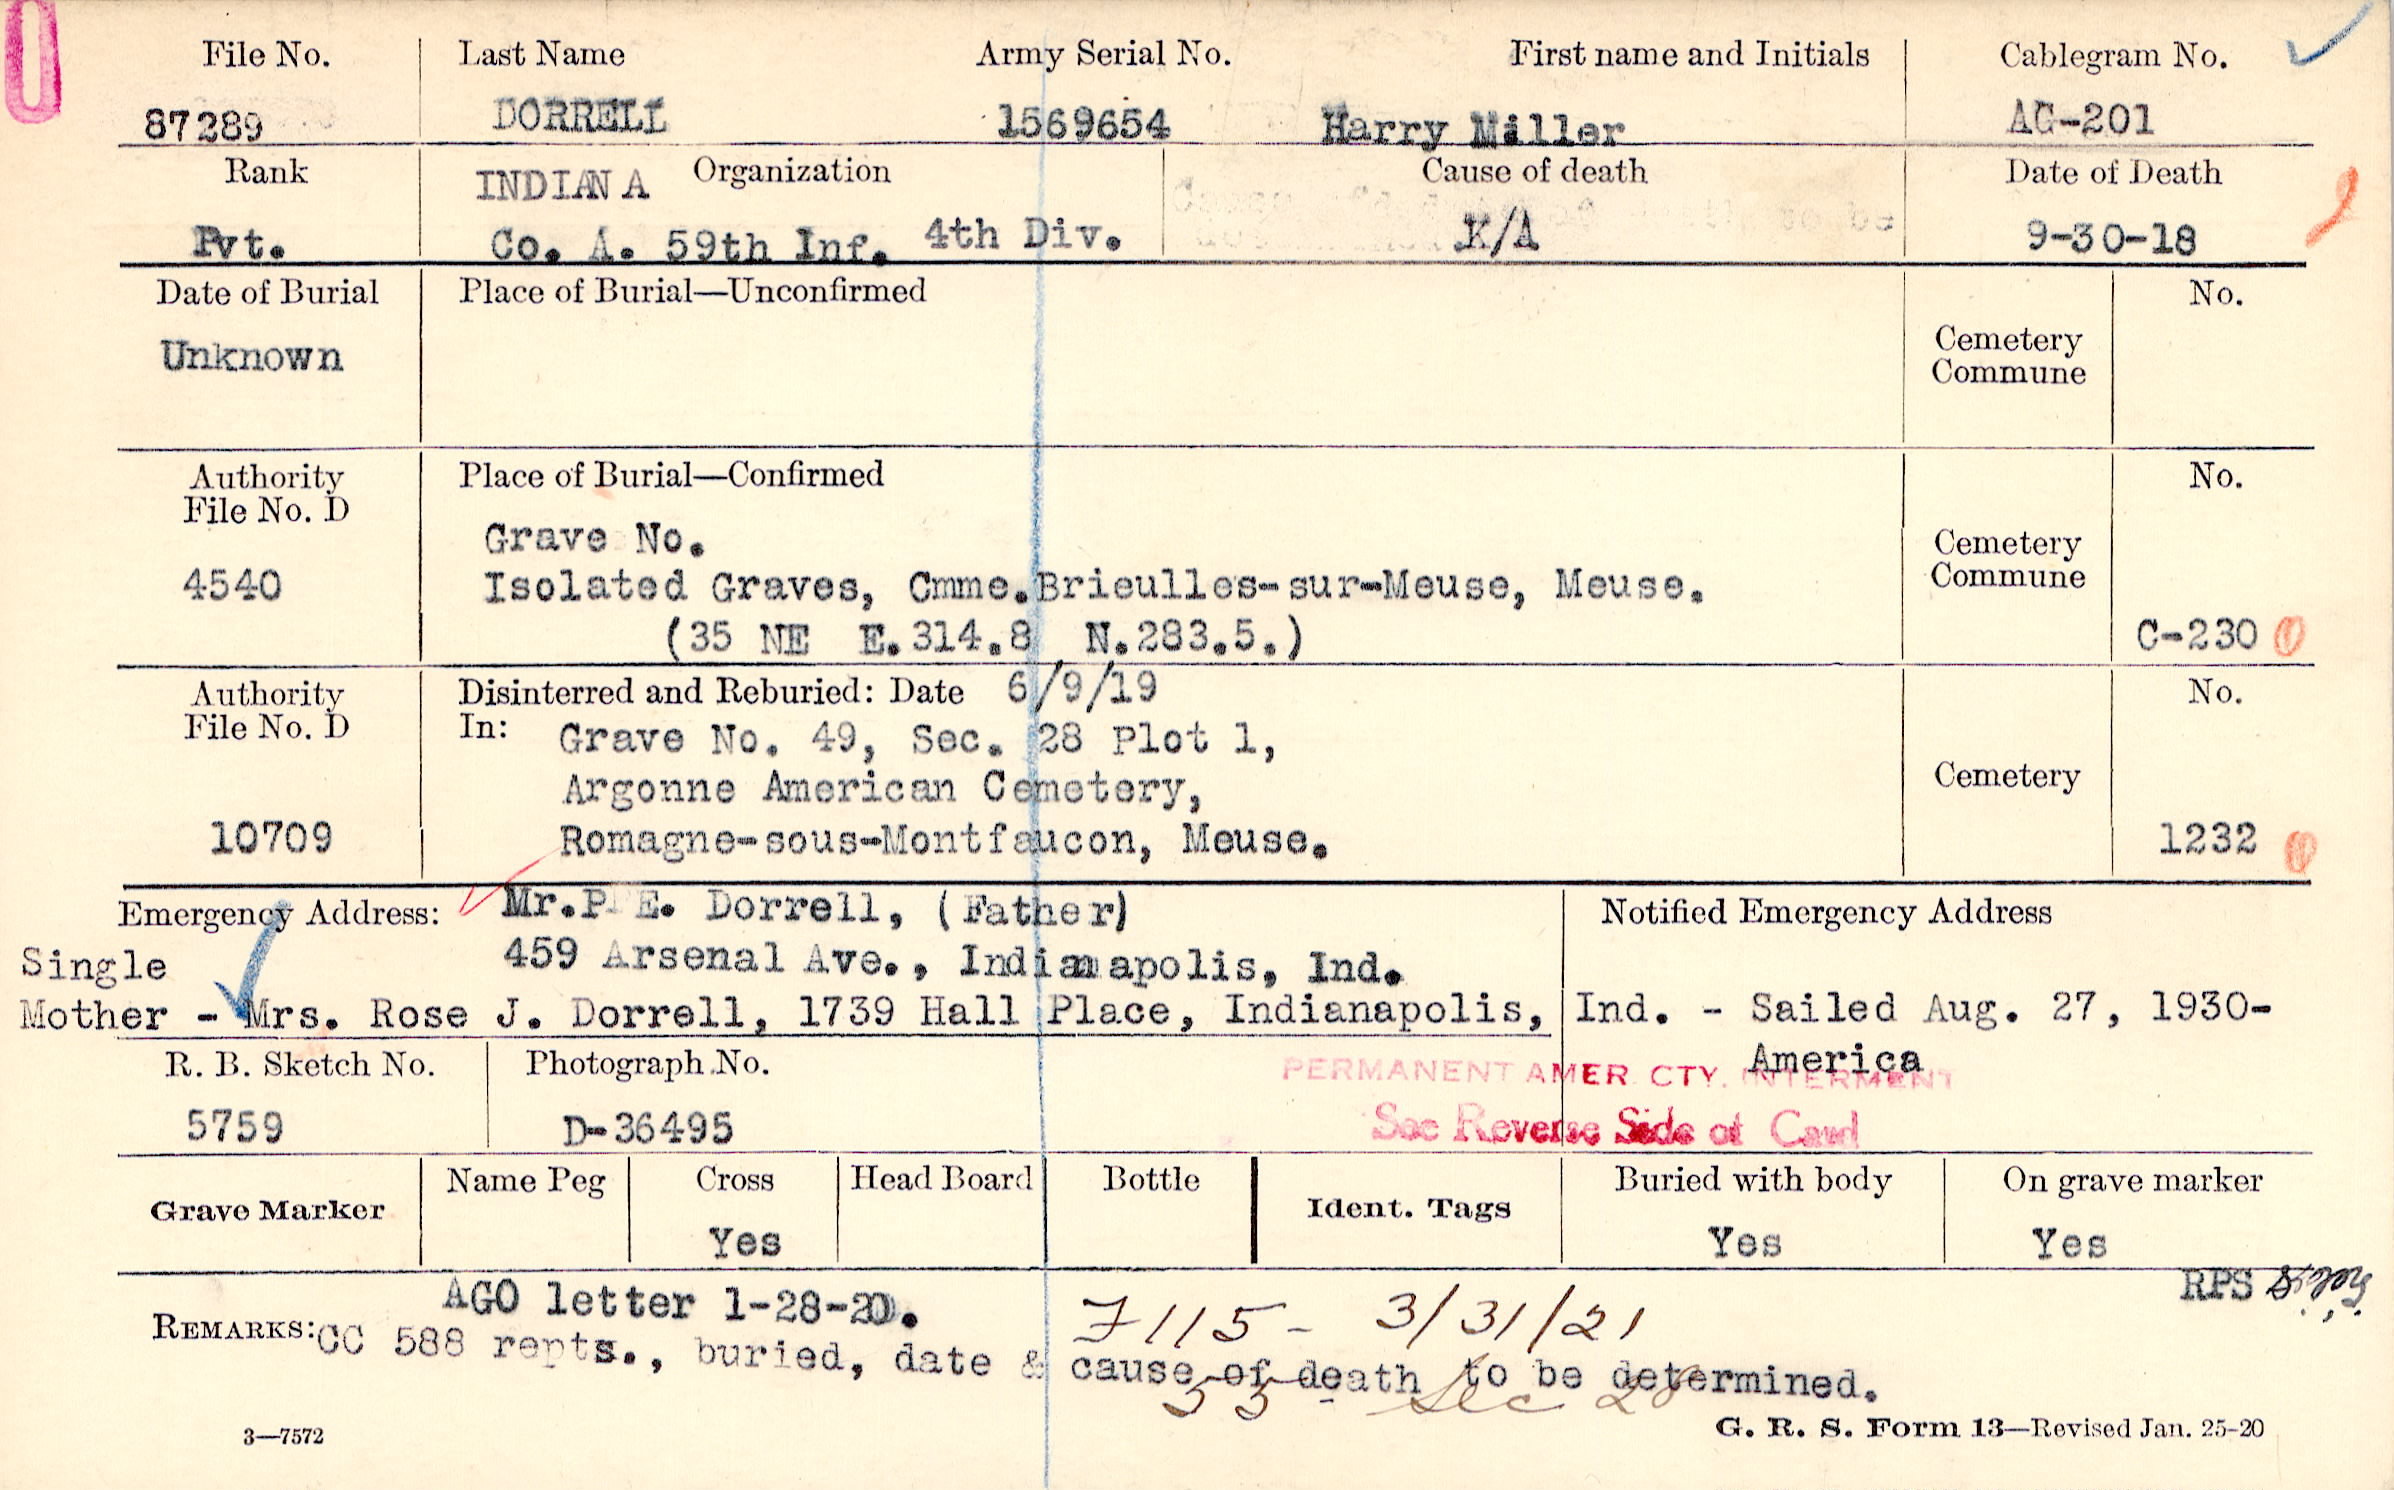 File No. Last Name Army Serial No. First name and Initials Cablegram No.
87289 DORRELL 1569654 Harry Miller AG-201
Rank INDIANA Organization Cause of death Date of Death
Pvt. Co. A. 59th Inf. 4th Div. K/A 9-30-18
Date of Burial Place of Burial—Unconfirmed No.
Unknown Cemetery
Commune
Authority Place of Burial—Confirmed No.
File No. D
Grave No.
4540 Isolated Graves, Cmme. Brieulles-sur-Meuse, Meuse. Cemetery
Commune
(35 NE E.314.8 N.283.5.) C-230
Authority Disinterred and Reburied: Date 6/9/19 No.
File No. D In: Grave No. 49, Sec. 28 Plot 1,
Argonne American Cemetery, Cemetery
10709 Romagne-sous-Montfaucon, Meuse. 1232
Emergency Address: Mr.P E. Dorrell, (Father) Notified Emergency Address
Single 459 Arsenal Ave., Indianapolis, Ind.
Mother - Mrs. Rose J. Dorrell, 1739 Hall Place, Indianapolis, Ind. - Sailed Aug. 27, 1930-
America
R. B. Sketch No. Photograph No. PERMANENT AMER. CTY. INTERMENT
5759 D-36495 See Reverse Side of Card
Grave Marker Name Peg Cross Head Board Bottle Ident. Tags Buried with body On grave marker
Yes Yes Yes
AGO letter 1-28-20. 7115 - 3/31/21 RPS
REMARKS: CC 588 repts., buried, date & cause of death to be determined.
55 - Sec 28
3—7572 G. R. S. Form 13—Revised Jan. 25-20